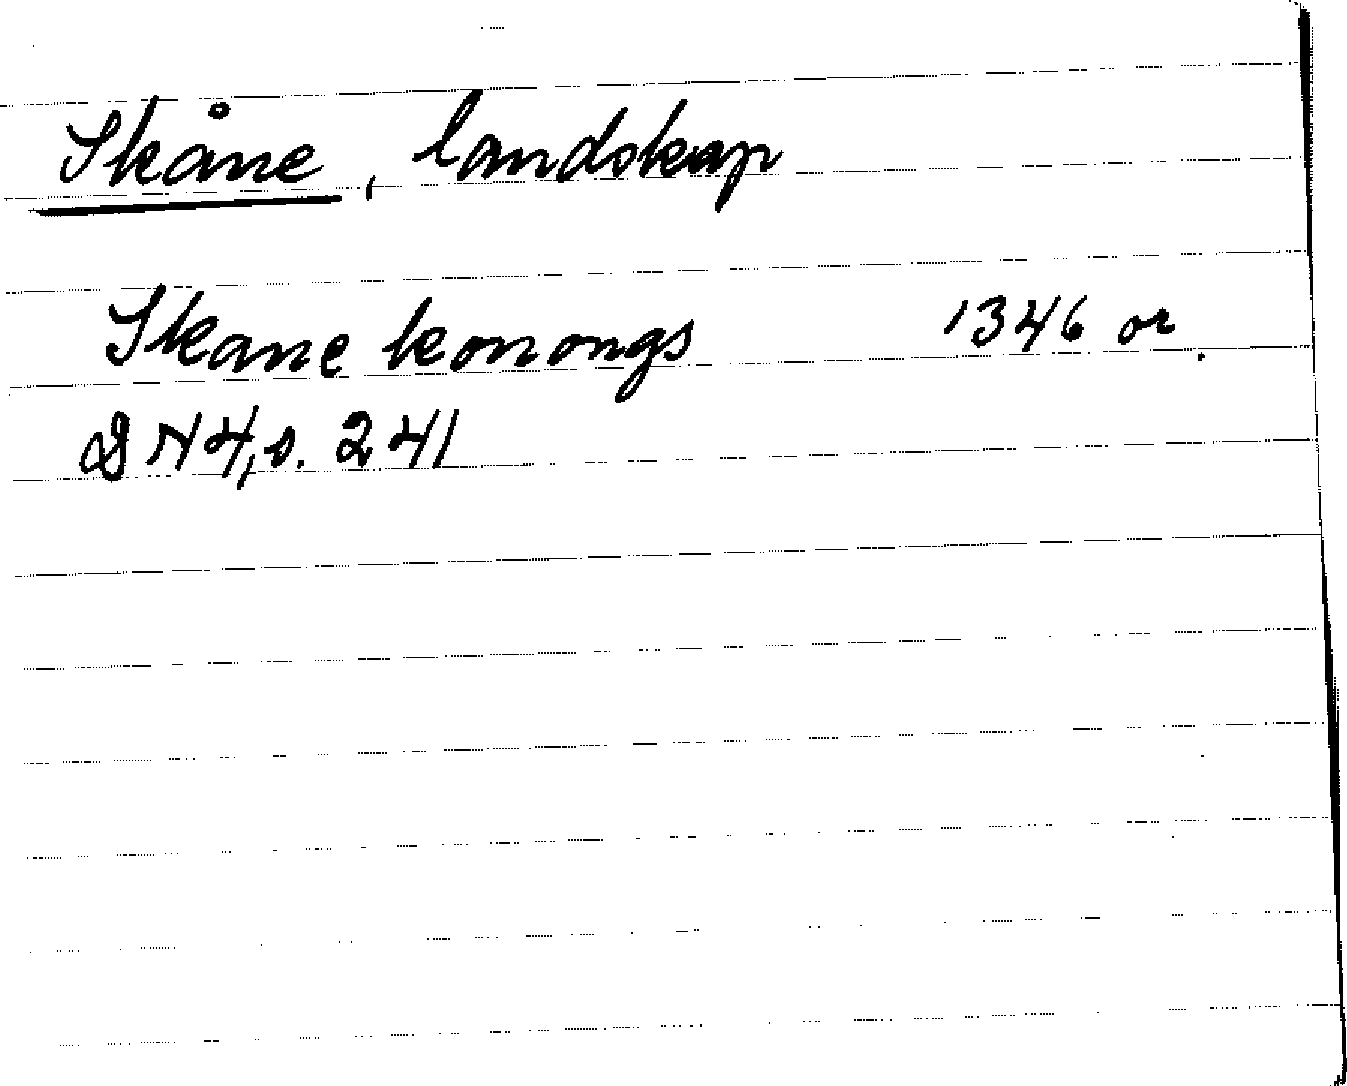 Skåne, landskap
Skane konongs 1346 or.
DN 4, s. 241